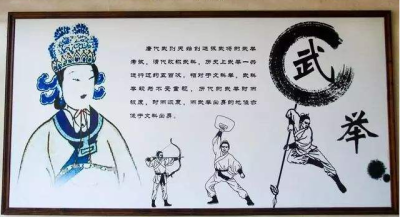 唐代武则天始创选拔武将的武举
考试，清代改称武科，历史上武举一共
进行过约五百次，相对于文科举，武科
举较为不受重视，历代的武举时而
被废，时而恢复，而武举出身的地位亦
低于文科出身。
武举